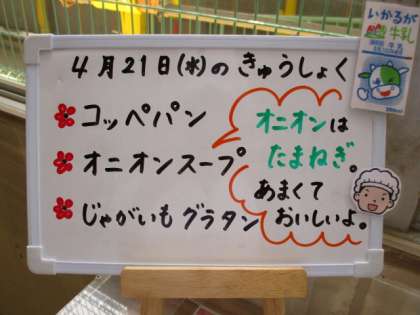 4月21日(水)のきゅうしょく
コッペパン
オニオンスープ
じゃがいもグラタン
オニオンは
たまねぎ。
あまくて
おいしいよ。
いかるが
牛乳